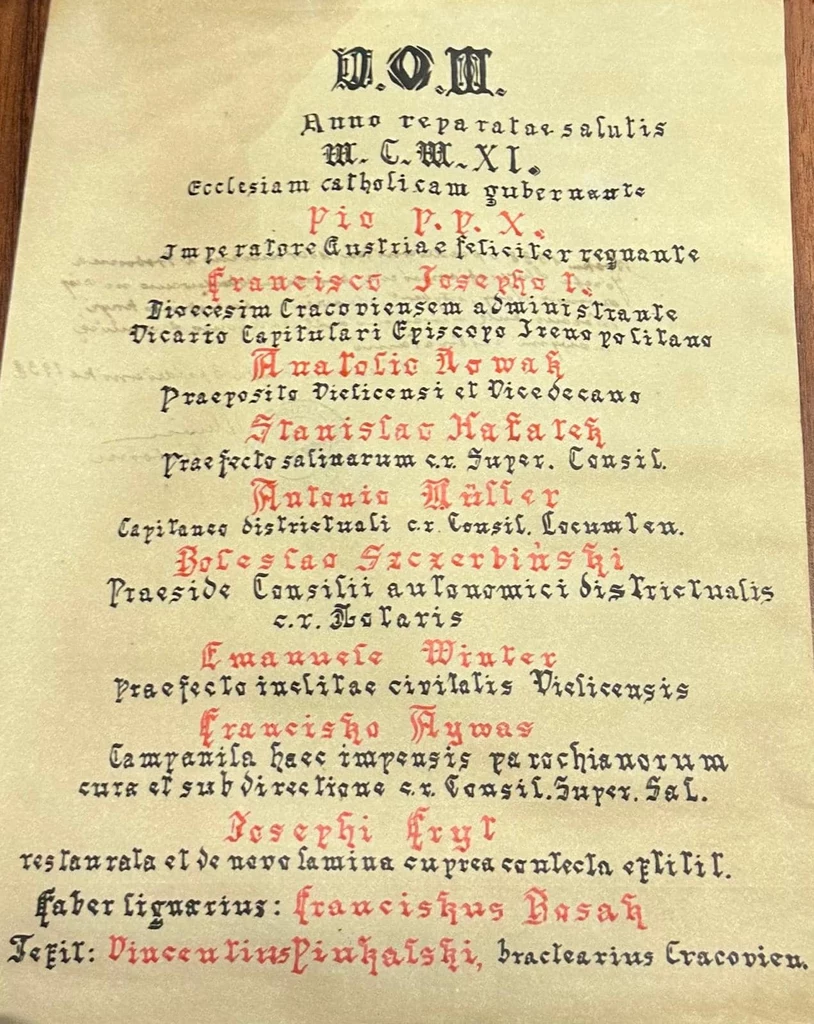 D.O.M.
Anno reparatae salutis
M.C.M.XI.
Ecclesiam catholicam gubernante
Pio P.P. X.
Imperatore Austriae feliciter regnante
Francisco Josepho I.
Dioecesim Cracoviensem administrante
Vicario Capitulari Episcopo Irenopolitano
Anatolio Nowak
Praeposito Vielicensi et Vicedecano
Stanislao Hałatek
Praefecto salinarum c.r. Super. Consil.
Antonio Müller
Capitaneo districtuali c.r. Consil. Locumten.
Boleslao Szczerbiński
Praeside Consilii autonomici districtualis
c.r. Notaris
Emanuele Winter
Praefecto inclitae civitatis Vielicensis
Francisko Aywas
Campanila haec impensis parochianorum
cura et sub directione c.r. Consil. Super. Sal.
Josephi Fryt
restaurata et de novo lamina cuprea contecta extitit.
Faber lignarius: Franciskus Bosak
Texit: Vincentius Pinkalski, bractearius Cracovien.